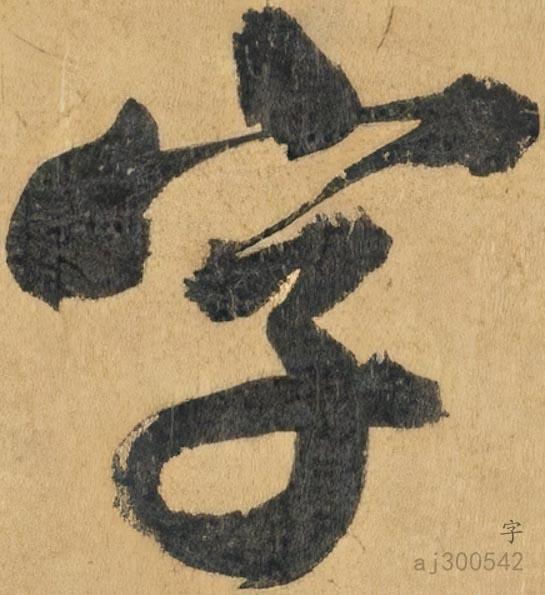 字
字
aj300542